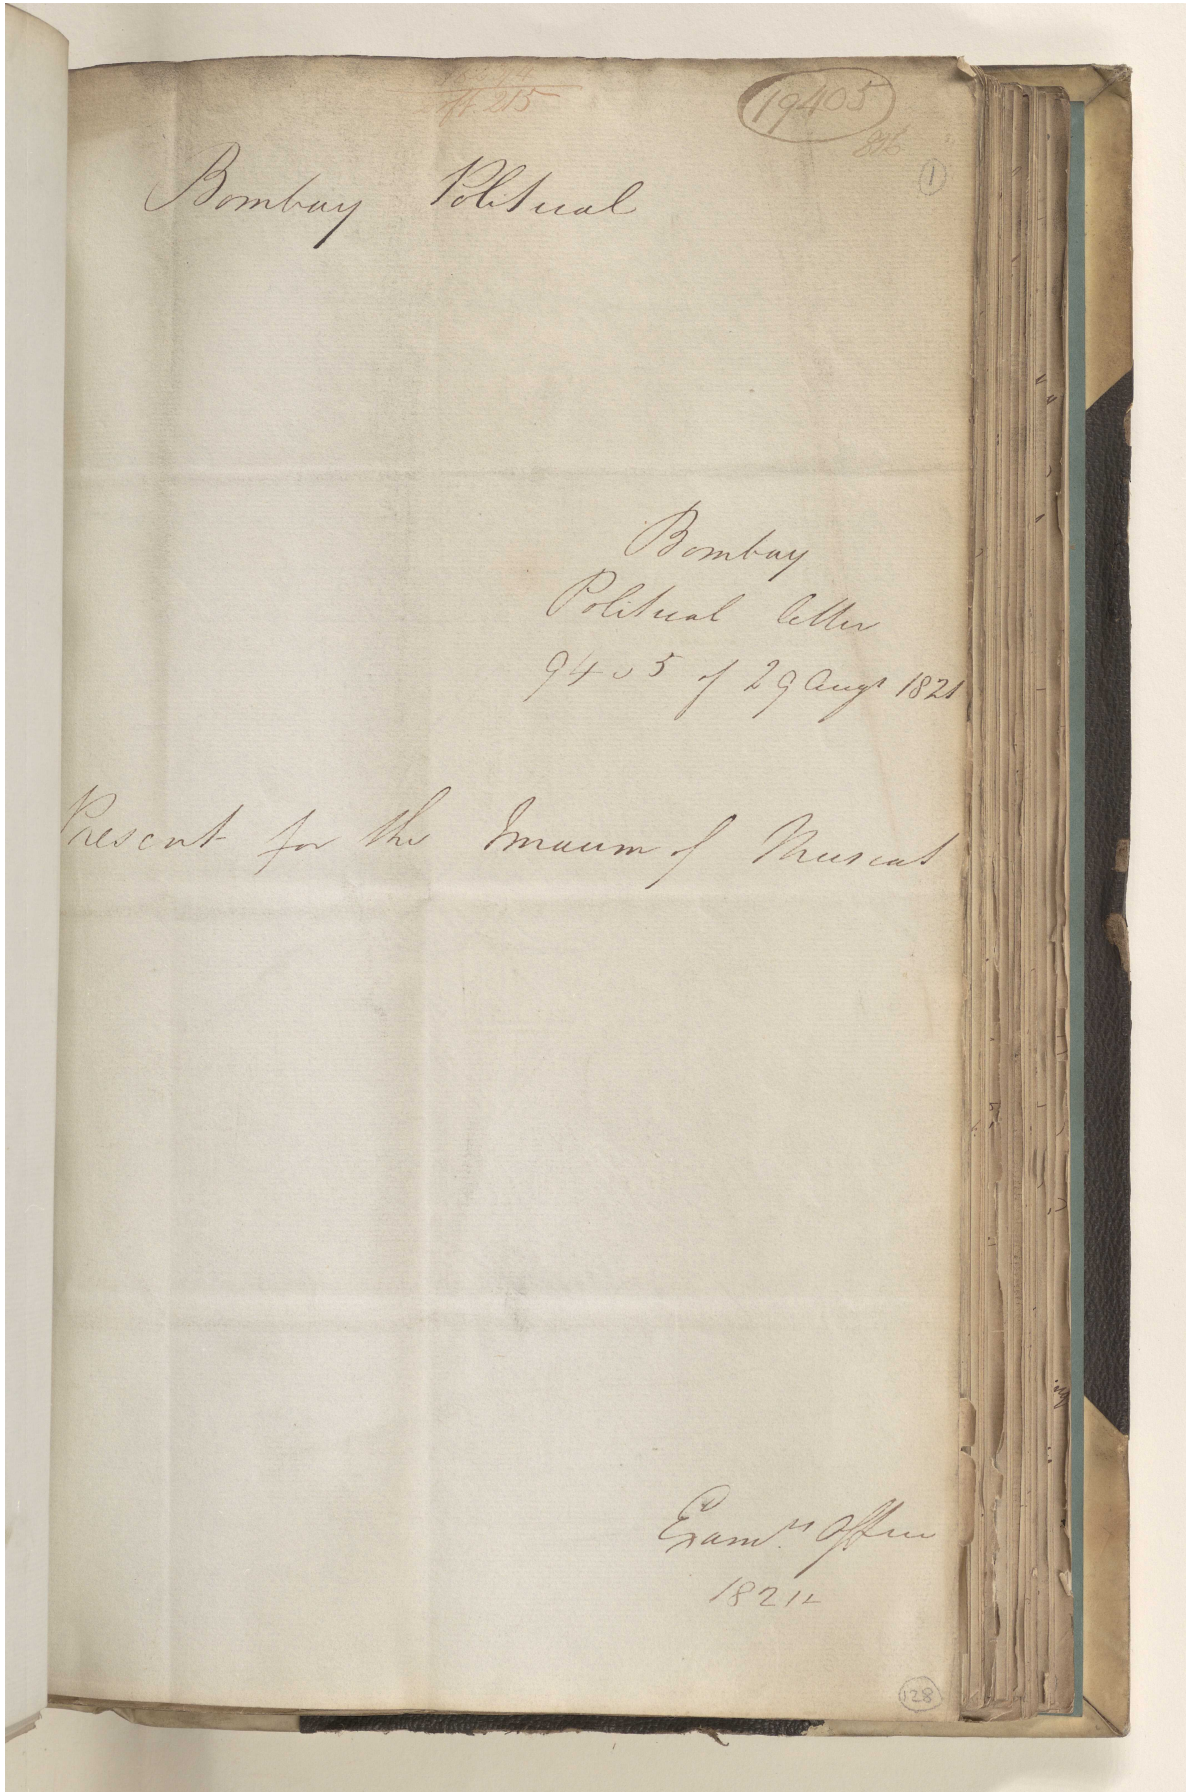 215
19405
896
1
Bombay Political
Bombay
Political letter
9405 of 29 Augt 1821
Present for the Imaum of Muscat
Examrs Office
182
128